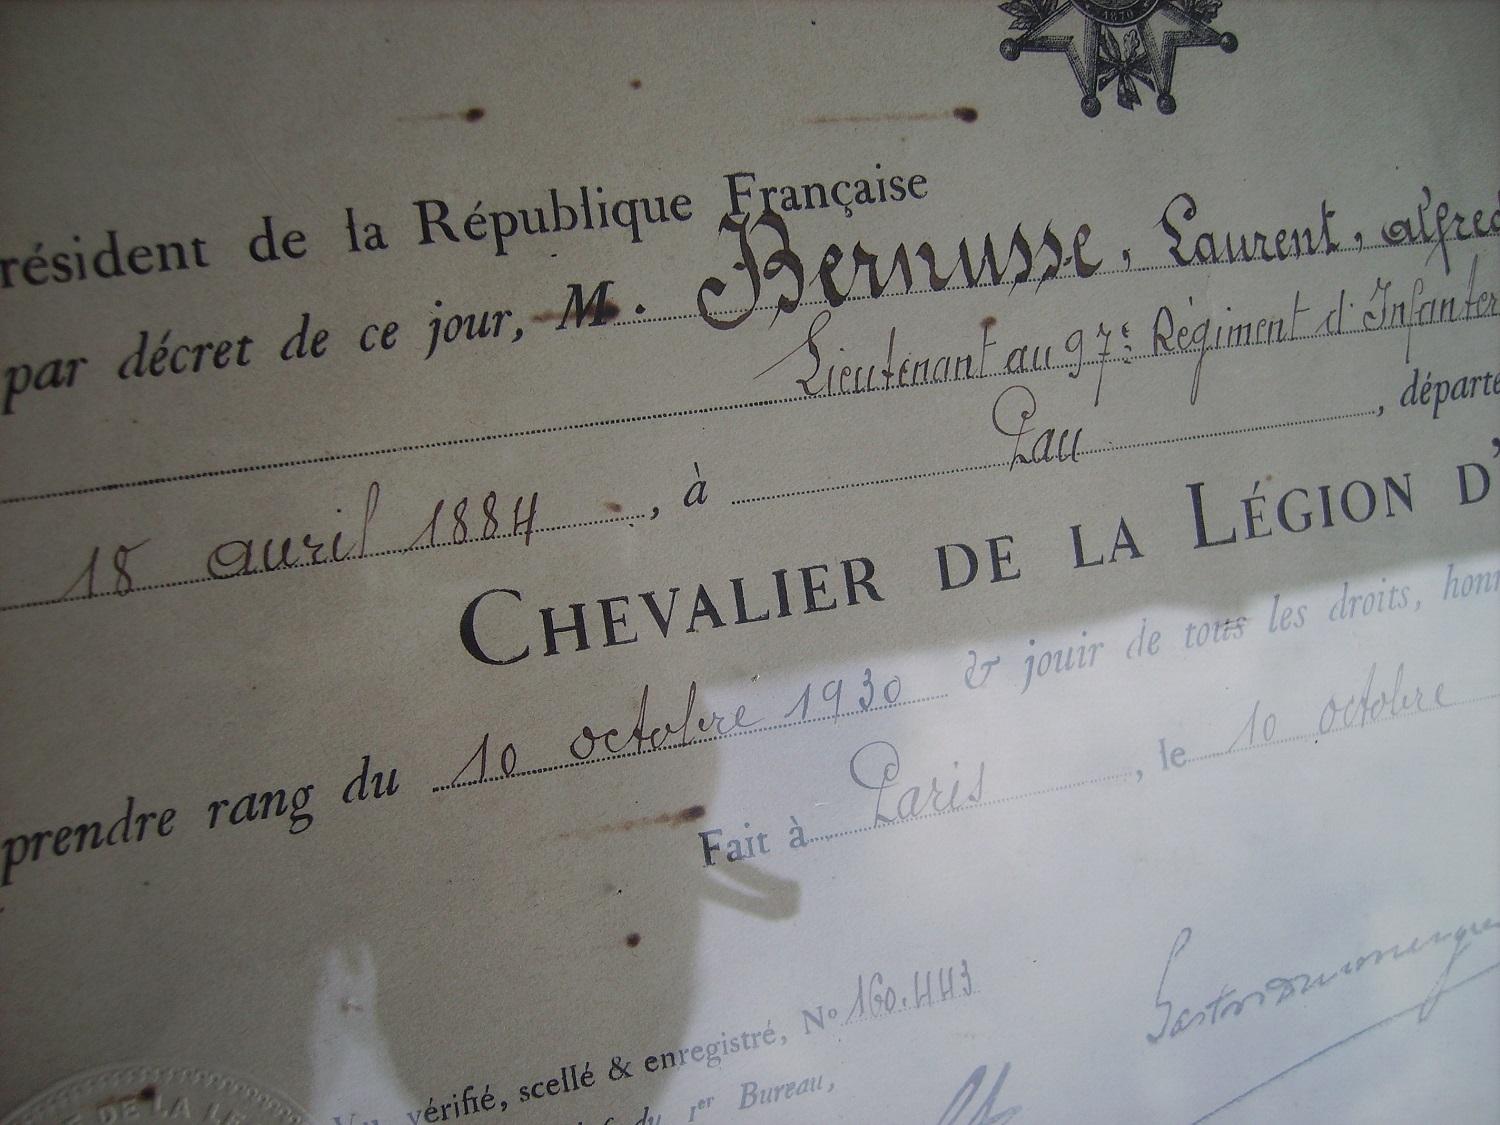 1870
résident de la République Française
par décret de ce jour, M. Bernusse, Laurent, Alfred
Lieutenant au 97e Régiment d'Infanter
18 avril 1884, à Pau, départe
CHEVALIER DE LA LÉGION D'
prendre rang du 10 octobre 1930 & jouir de tous les droits, honn
Fait à Paris, le 10 octobre
Gaston Doumergue
vérifié, scellé & enregistré, No 160.443
du 1er Bureau,
DE LA LÉ